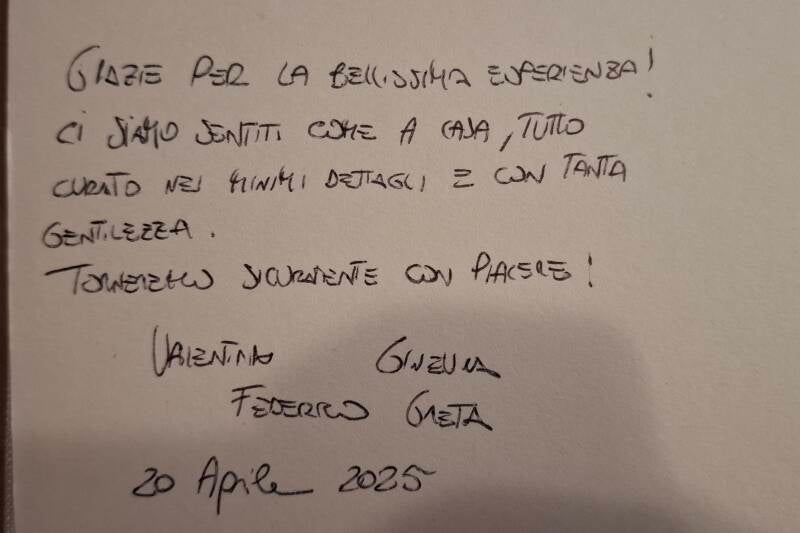 GRAZIE PER LA BELLISSIMA ESPERIENZA!
CI SIAMO SENTITI COME A CASA, TUTTO
CURATO NEI MINIMI DETTAGLI E CON TANTA
GENTILEZZA.
TORNEREMO SICURAMENTE CON PIACERE!
GINEVRA
FEDERICO GRETA
20 Aprile 2025